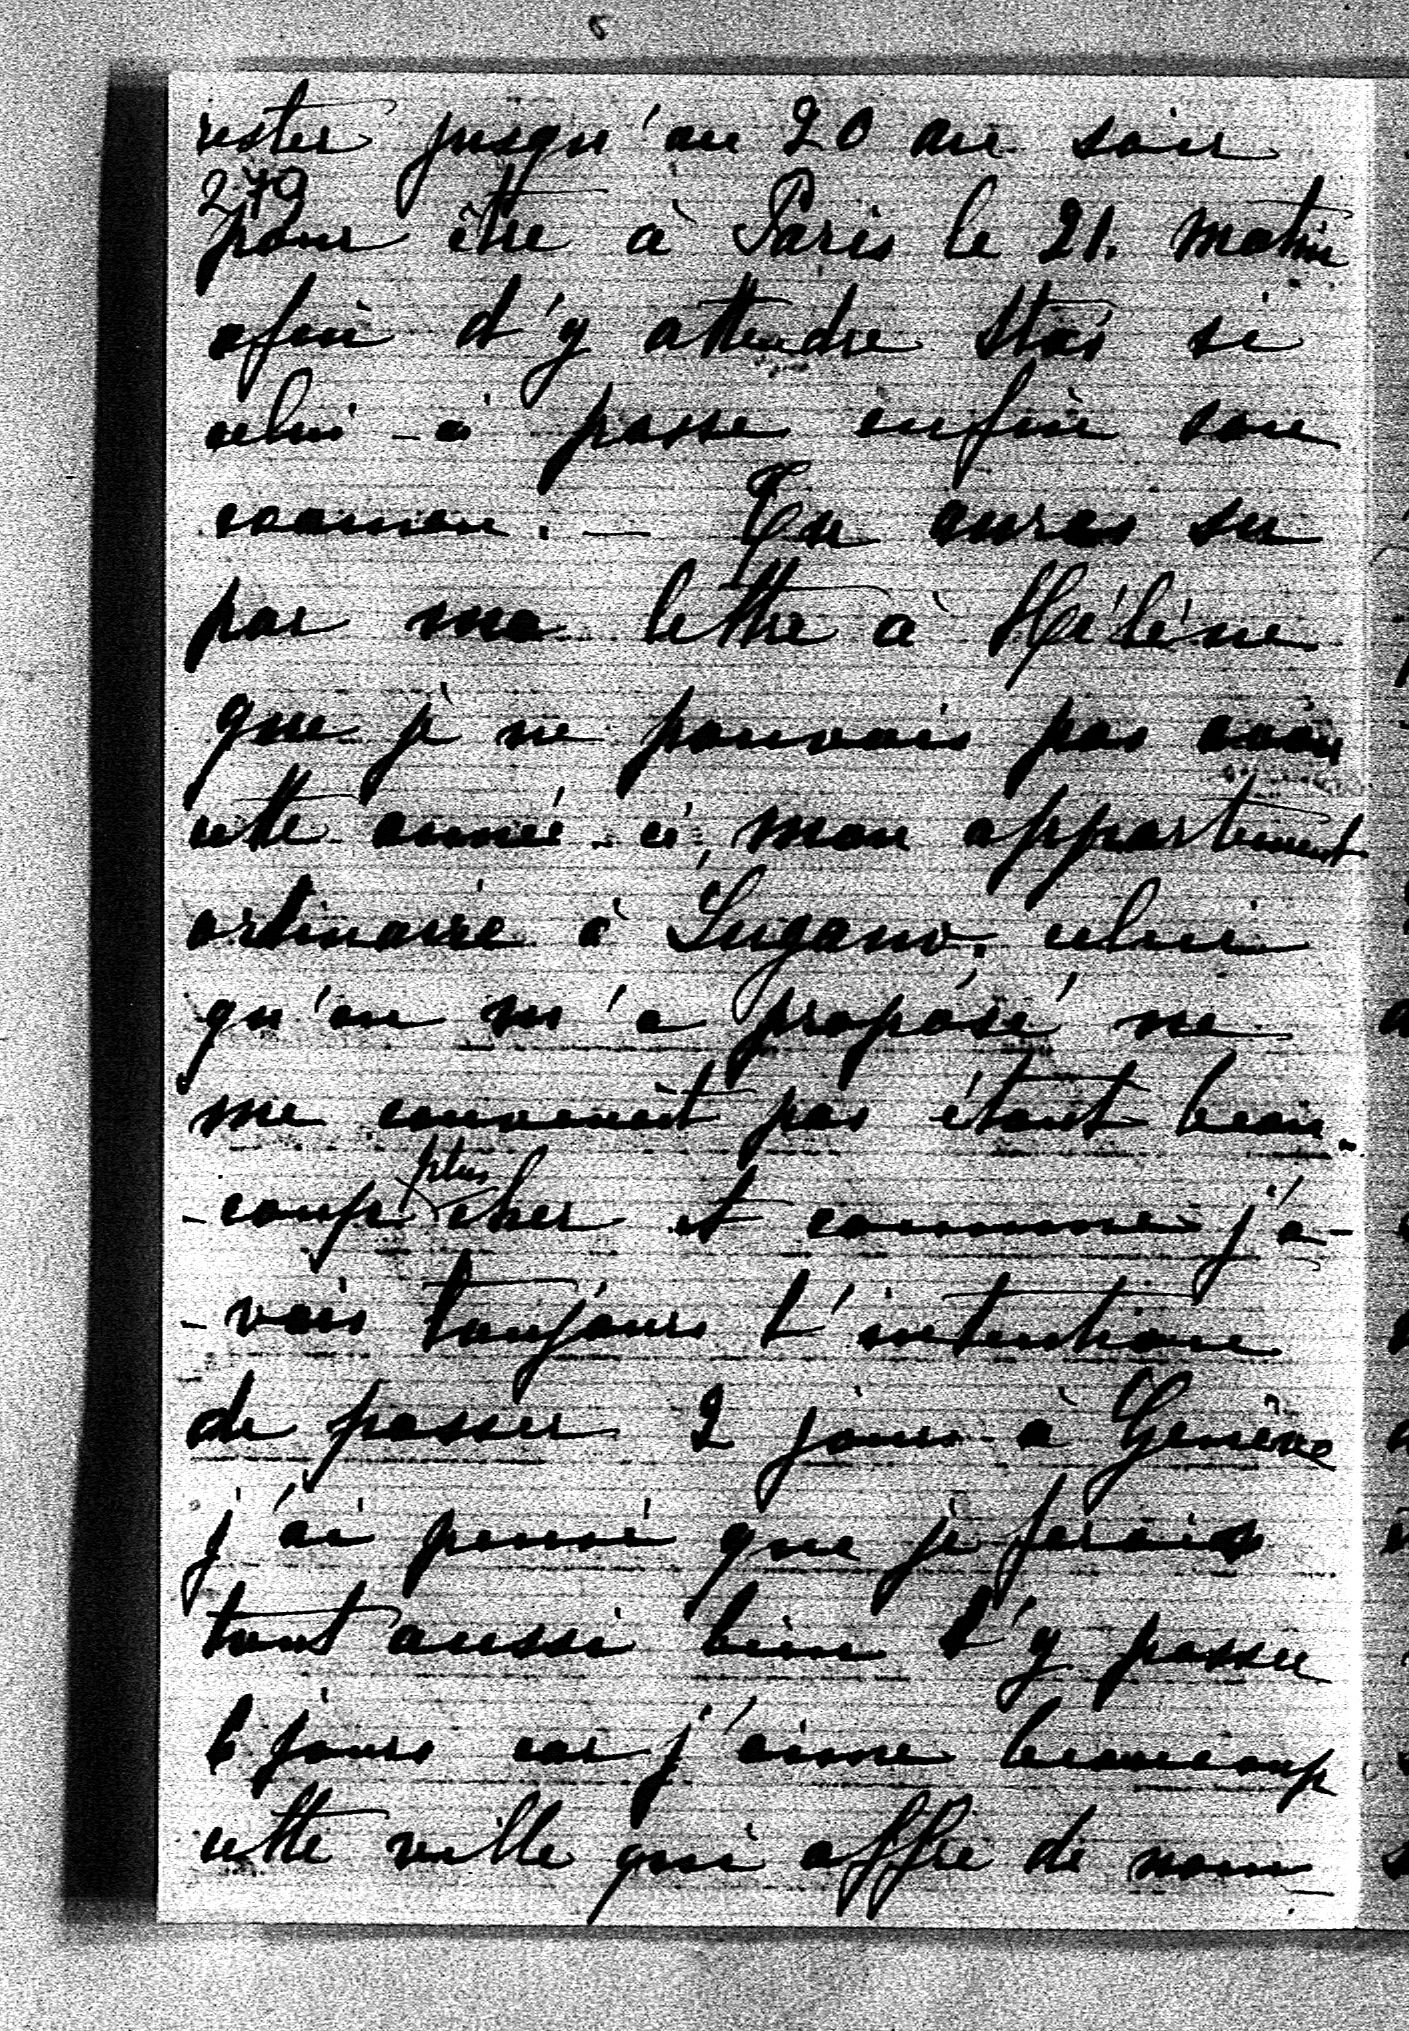 5
rester jusqu'au 20 au soir
279
pour être à Paris le 21. matin
afin d'y attendre Stas si
celui-ci passe enfin son
examen. — Tu auras su
par ma lettre à Hélène
que je ne pouvais pas avoir
cette année-ci mon appartement
ordinaire à Lugano. celui
qu'on m'a proposé ne
me convenait pas étant beau-
plus
-coup cher et comme j'a-
-vais toujours l'intention
de passer 2 jours à Genève
j'ai pensé que je ferais
tout aussi bien d'y passer
6 jours car j'aime beaucoup
cette ville qui offre de nom